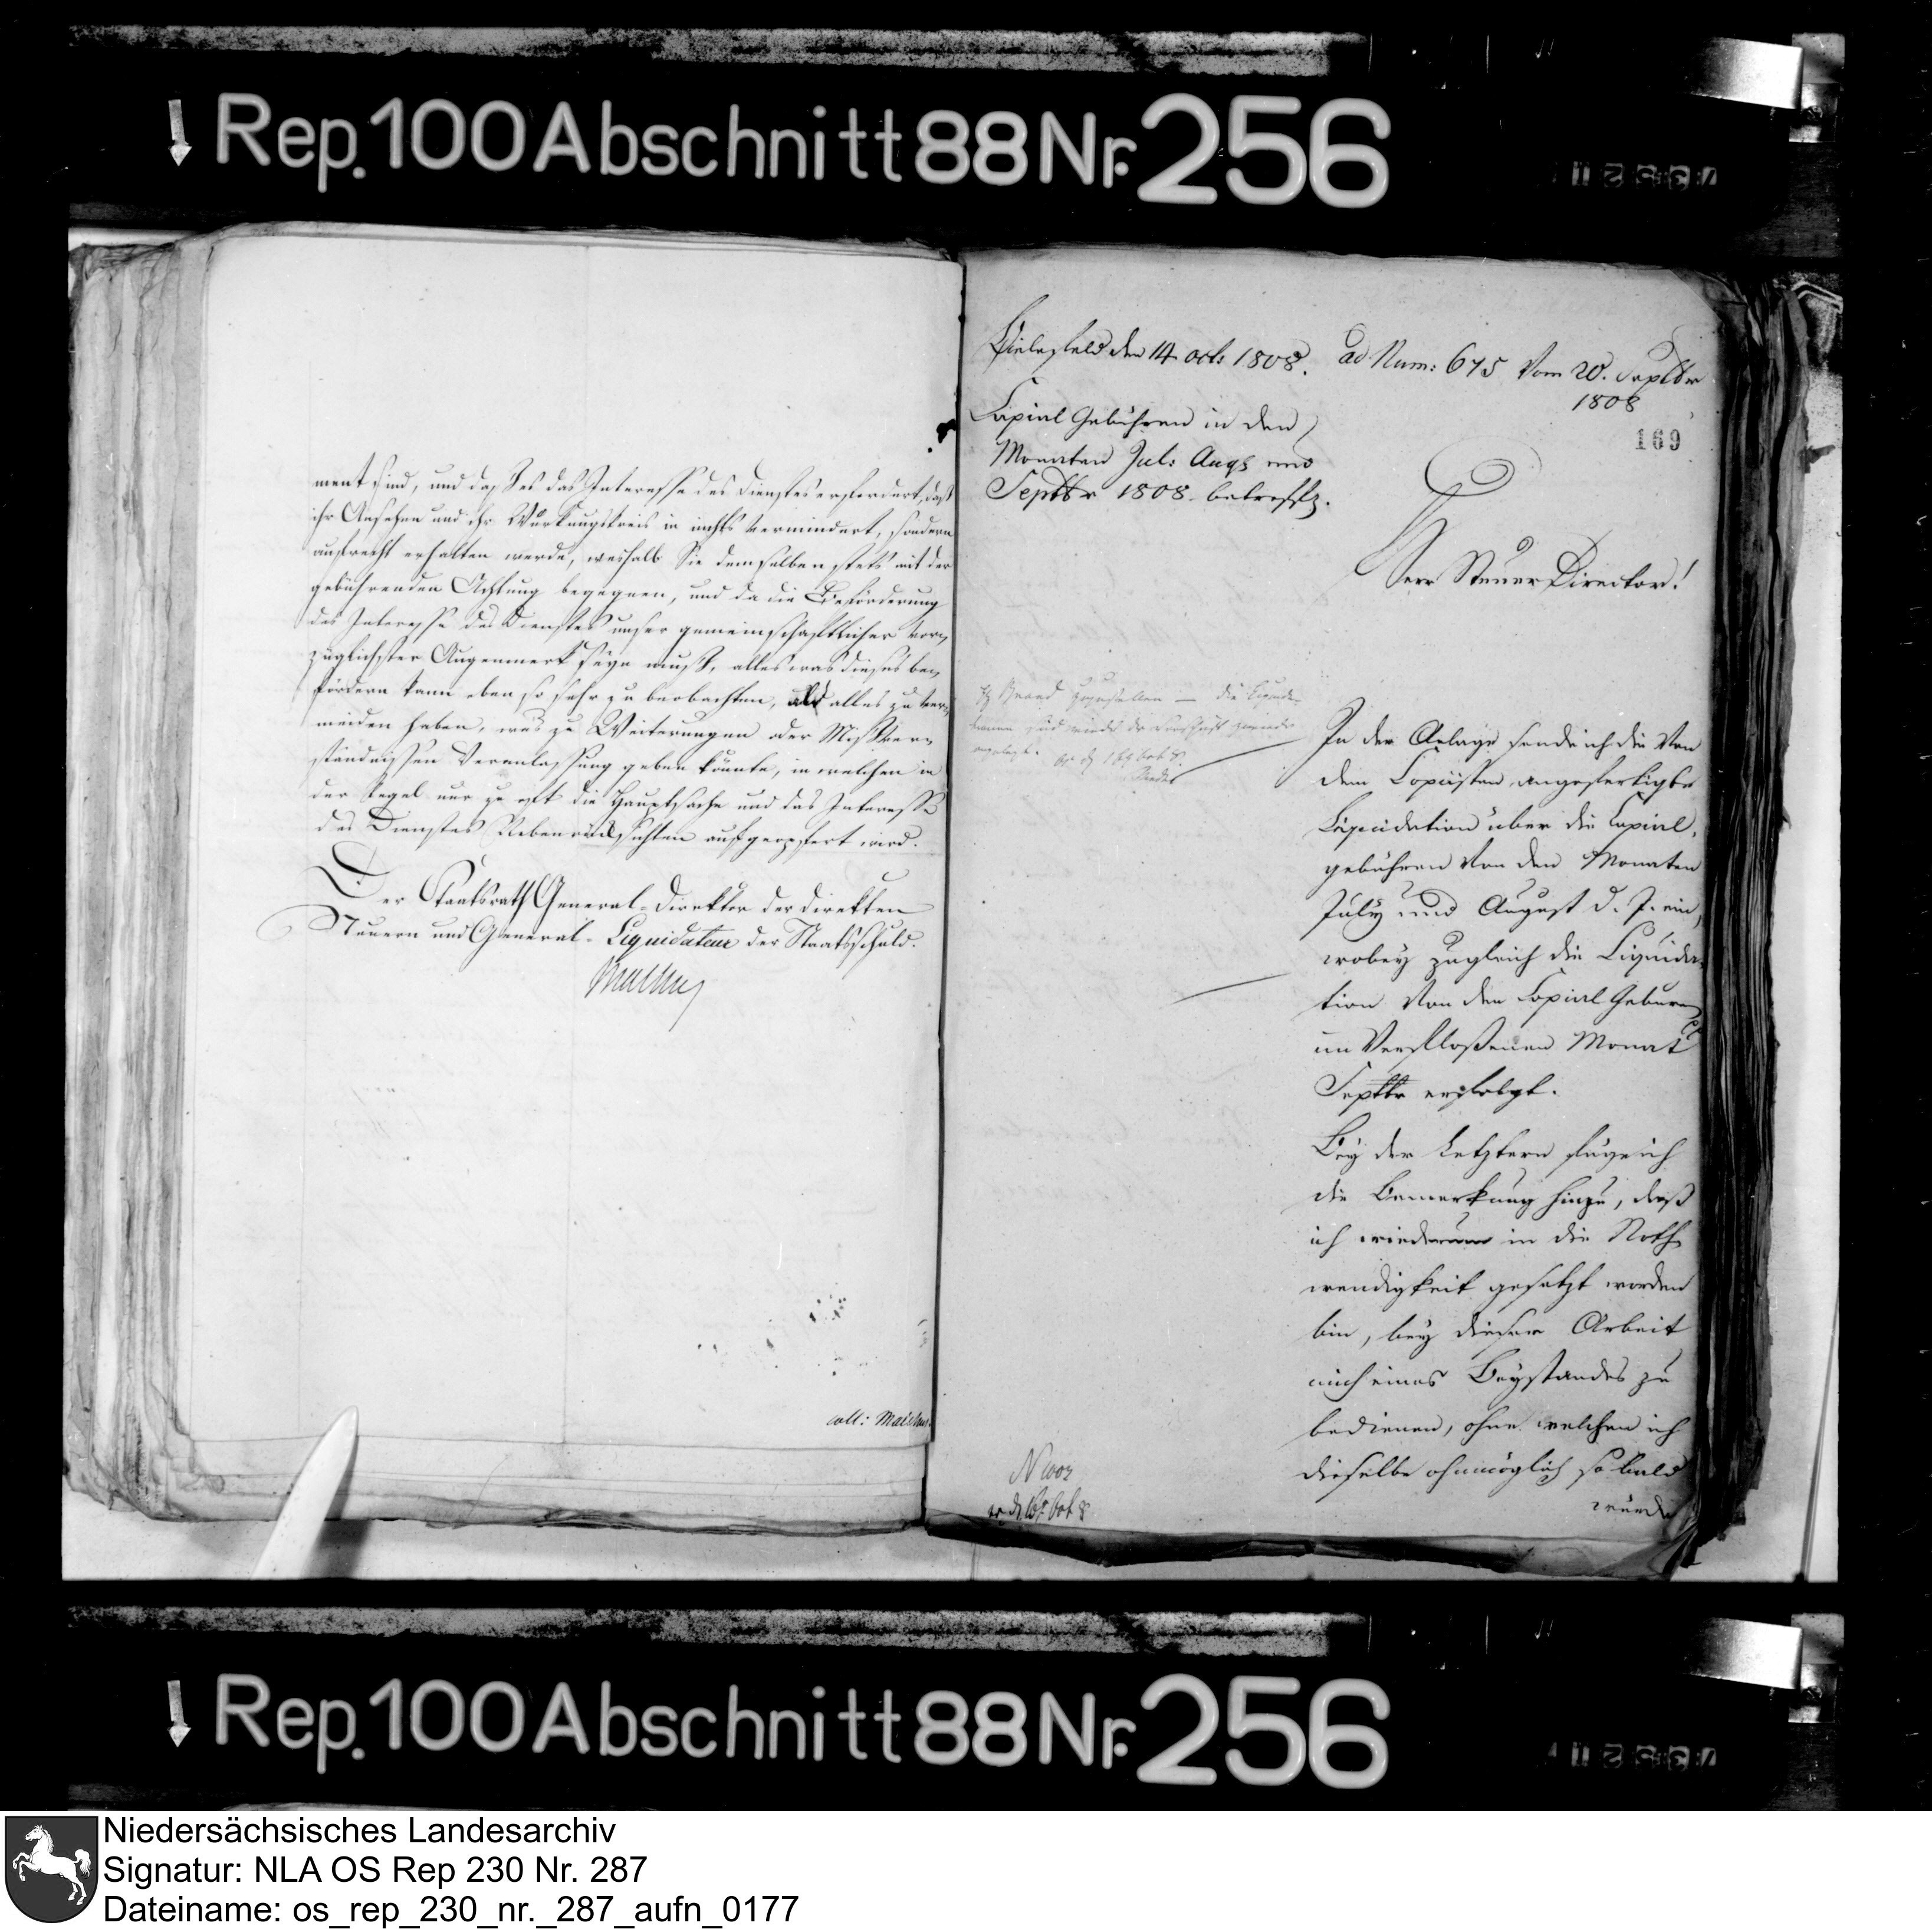 Rep. 100 Abschnitt 88 Nr. 256
ment sind, und daß es das Interesse des Dienstes erfordert, daß
ihr Ansehen und ihr Würkungskreis in nichts vermindert, sondern
aufrecht erhalten werde, weshalb Sie demselben stets mit der
gebührenden Achtung begegnen, und da die Beförderung
des Interesse des Dienstes unser gemeinschaftlicher vor-
züglichster Augenmerk seyn muß, alles was dieses be-
fördern kann eben so sehr zu beobachten, als alles zu ver-
meiden haben, was zu Weiterungen oder Mißver-
ständnissen Veranlassung geben könnte, in welchen in
der Regel nur zu oft die Hauptsache und das Interesse
des Dienstes Nebenrücksichten aufgeopfert wird.
Der Staatsrath General-Direktor der direkten
Steuern und General-Liquidateur der Staatsschuld.
Malchus
coll:
Bielefeld den 14 oct: 1808.
ad Num: 675 vom 20. Septbr
1808
169
Copial Gebühren in den
Monaten Jul: Augs und
Septbr 1808. betreffd.
Herr Steuer Director!
In der Anlage sende ich die von
dem Copiisten angefertigte
Liquidation über die Copial-
gebühren von den Monaten
July und August d. J. ein,
wobey zugleich die Liquida-
tion von den Copial Gebüren
im Verfloßenen Monat
Septbr erfolgt.
Bey der Letztern füge ich
die Bemerkung hinzu, daß
ich wiederum in die Noth
wendigkeit gesetzt worden
bin, bey dieser Arbeit
mich eines Beystandes zu
bedienen, ohne welchen ich
dieselbe ohnmöglich so bald
würde
Rep. 100 Abschnitt 88 Nr. 256
Niedersächsisches Landesarchiv
Signatur: NLA OS Rep 230 Nr. 287
Dateiname: os_rep_230_nr._287_aufn_0177